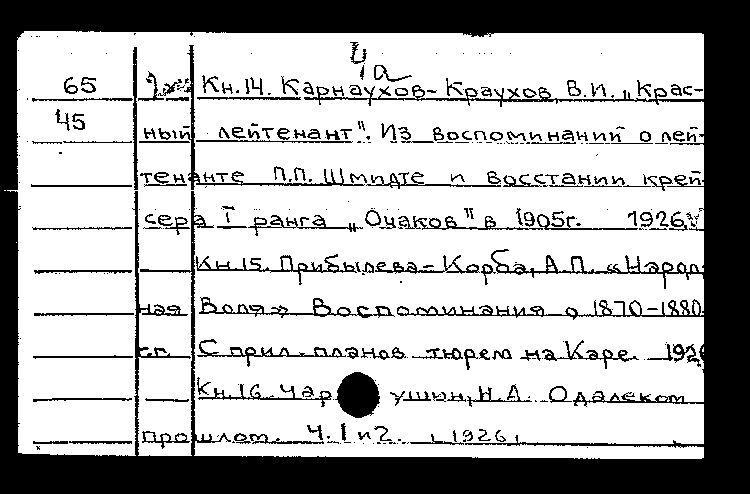 4а
65 Кн.14. Карнаухов-Краухов, В.И. „Крас-
45 ный лейтенант". Из воспоминаний о лей-
тенанте П.П. Шмидте и восстании крей-
сера I ранга „Очаков" в 1905г. 1926.
Кн.15. Прибылева-Корба, А.П. «Народ-
ная Воля» Воспоминания о 1870-1880-
г.г. С прил. планов тюрем на Каре. 1926
Кн.16. Чар ушин, Н.А. О далеком
прошлом. Ч.1 и 2. 1926.